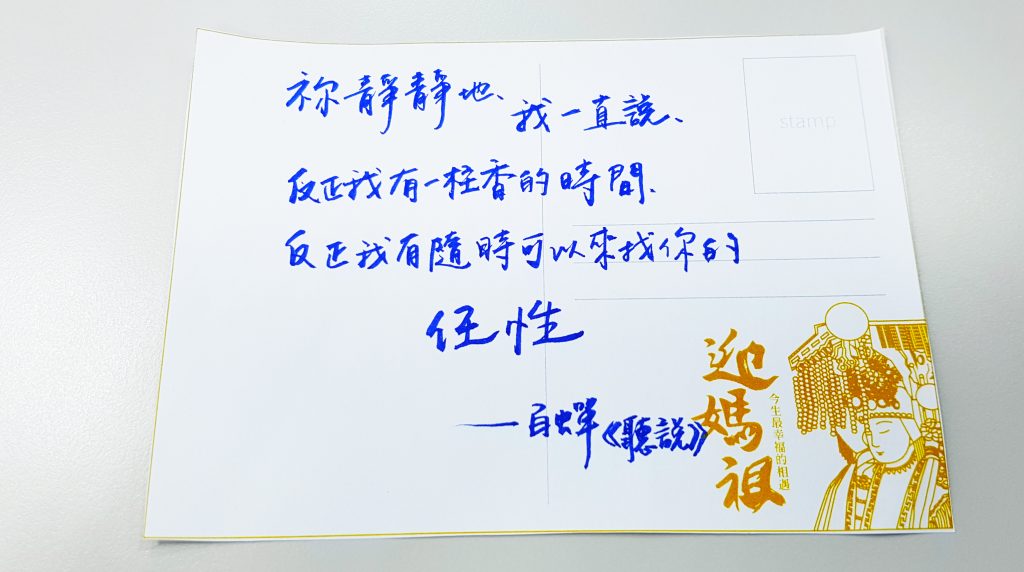 祢靜靜地、我一直說、
反正我有一柱香的時間、
反正我有隨時可以來找你的
任性
——白蟬《聽說》
stamp
迎媽祖
今生最幸福的相遇